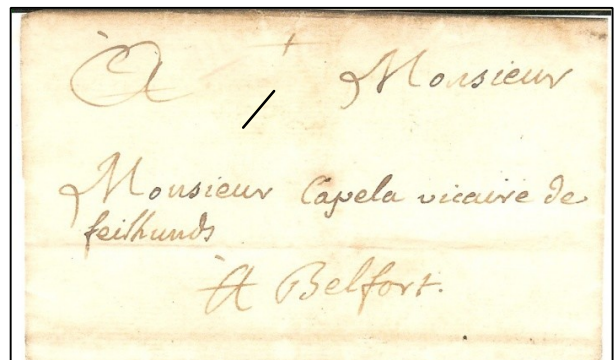 À Monsieur
Monsieur Capela vicaire de
feilhunds
À Belfort.